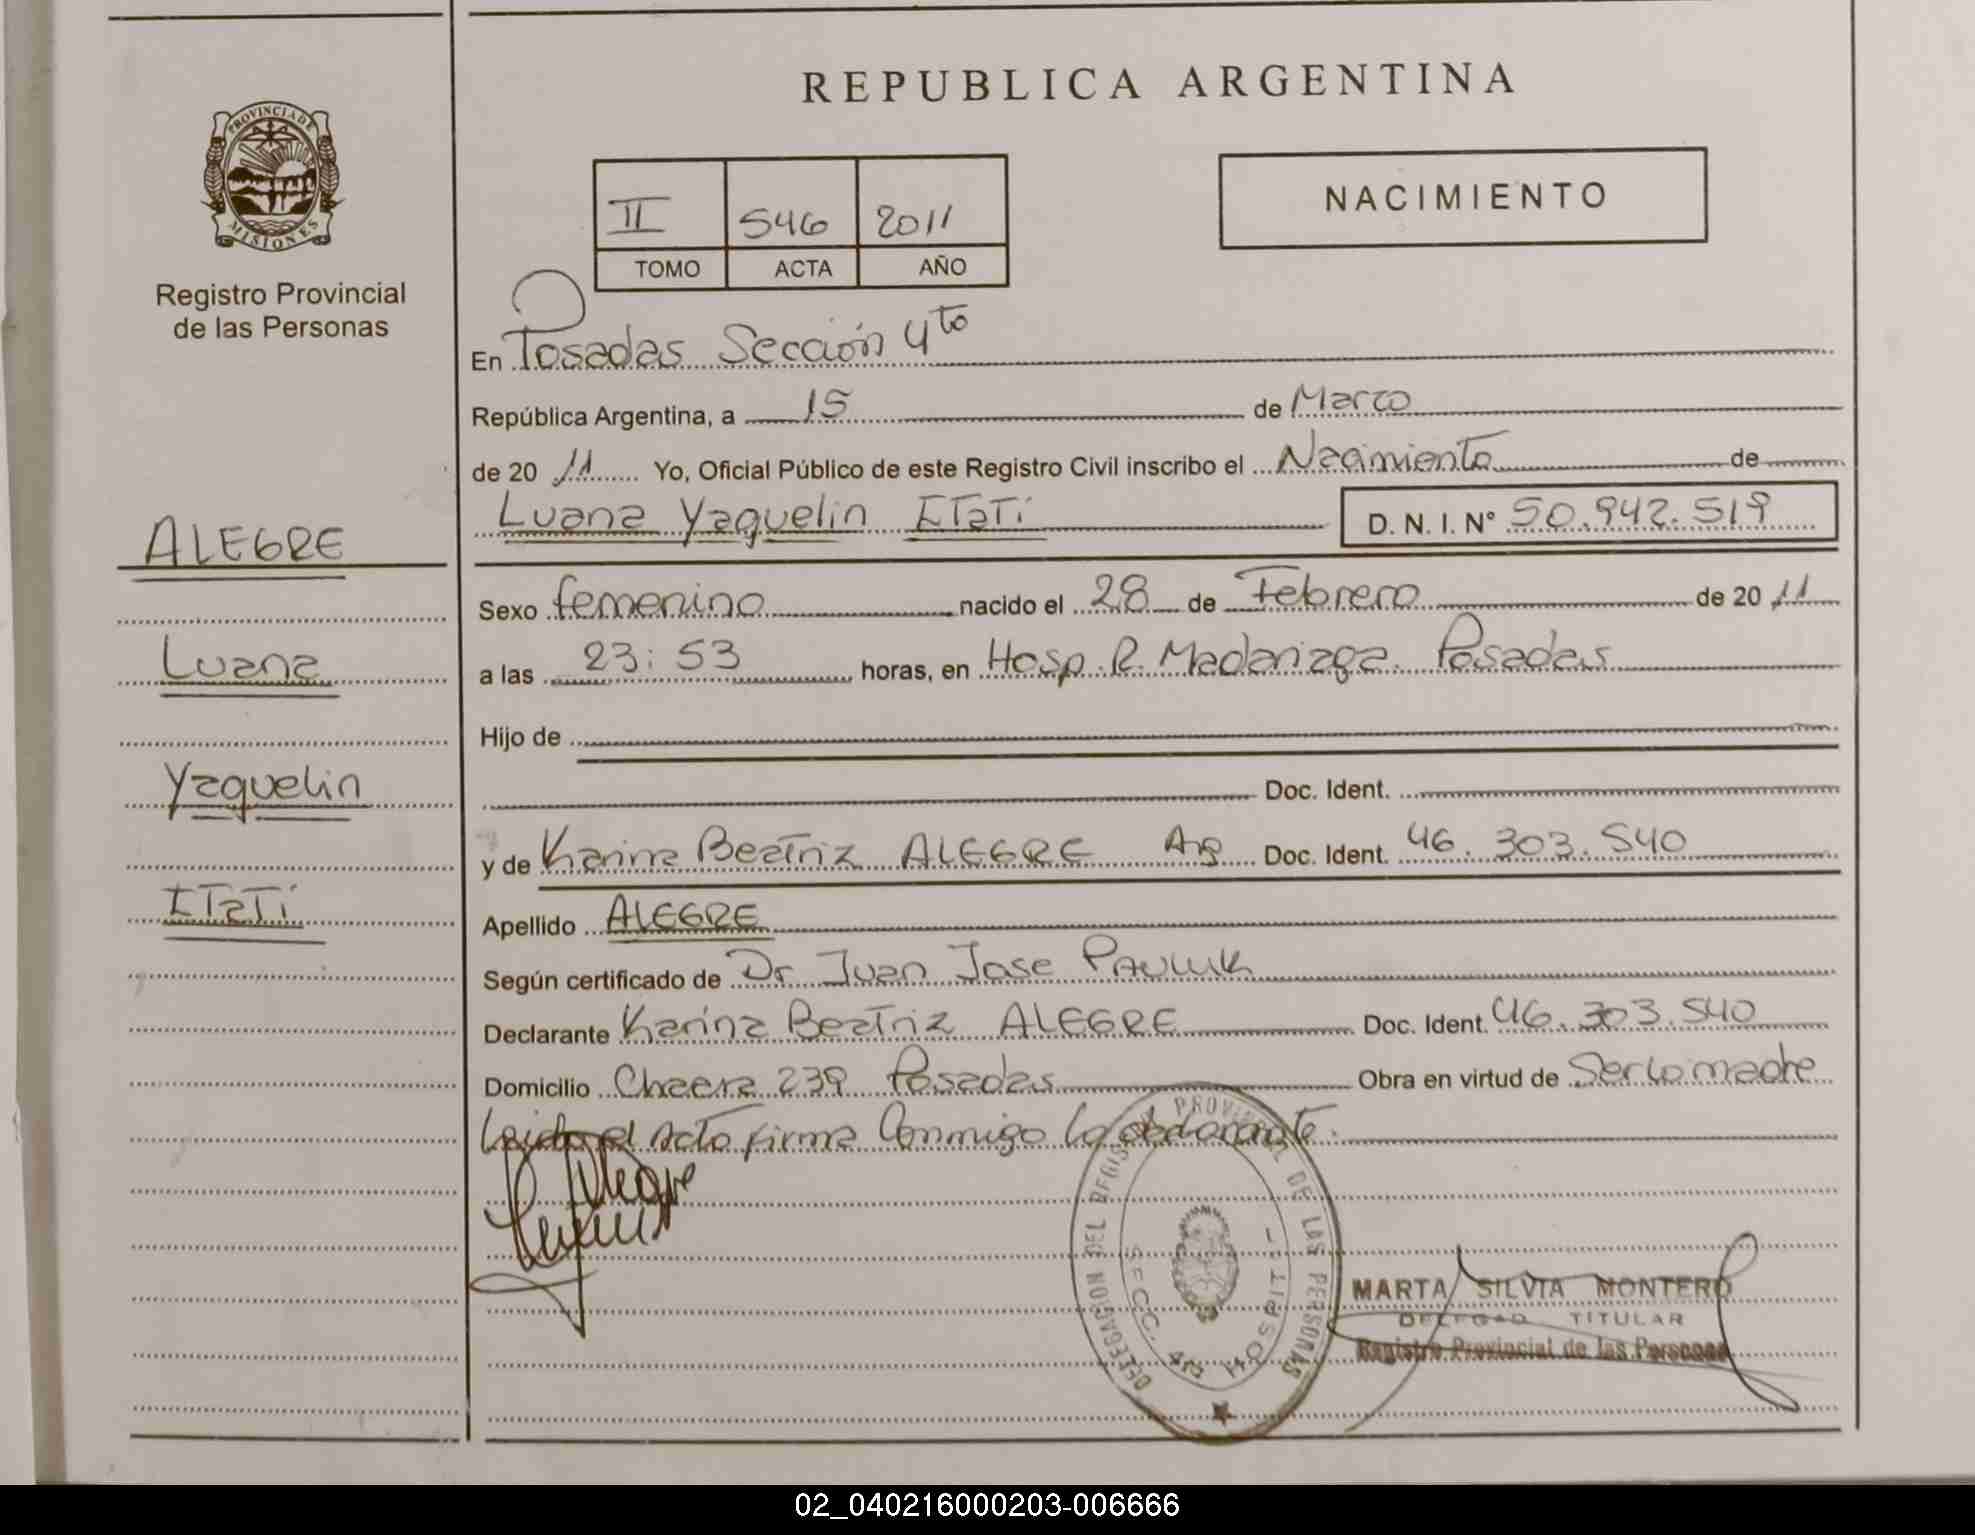 REPUBLICA ARGENTINA
PROVINCIA DE
MISIONES
Registro Provincial
de las Personas
II 546 2011
TOMO ACTA AÑO
NACIMIENTO
En Posadas Sección 4to
República Argentina, a 15 de Marzo
de 20 11 Yo, Oficial Público de este Registro Civil inscribo el Nacimiento de
Luana Yaquelin ITaTí D. N. I. N° 50.942.519
ALEGRE
Luana
Yaquelin
ITaTí
Sexo femenino nacido el 28 de Febrero de 20 11
a las 23:53 horas, en Hosp. R. Madariaga. Posadas
Hijo de
Doc. Ident.
y de Karina Beatriz ALEGRE Arg Doc. Ident. 46.303.540
Apellido ALEGRE
Según certificado de Dr Juan Jose
Declarante Karina Beatriz ALEGRE Doc. Ident. 46.303.540
Domicilio 239 Posadas Obra en virtud de Ser la madre
Leida el acta firma Conmigo la declarante.
DELEGACION DEL REGISTRO PROVINCIAL DE LAS PERSONAS
SECC. 4ta HOSPITAL
MARTA SILVIA MONTERO
TITULAR
Registro Provincial de las Personas
02_040216000203-006666